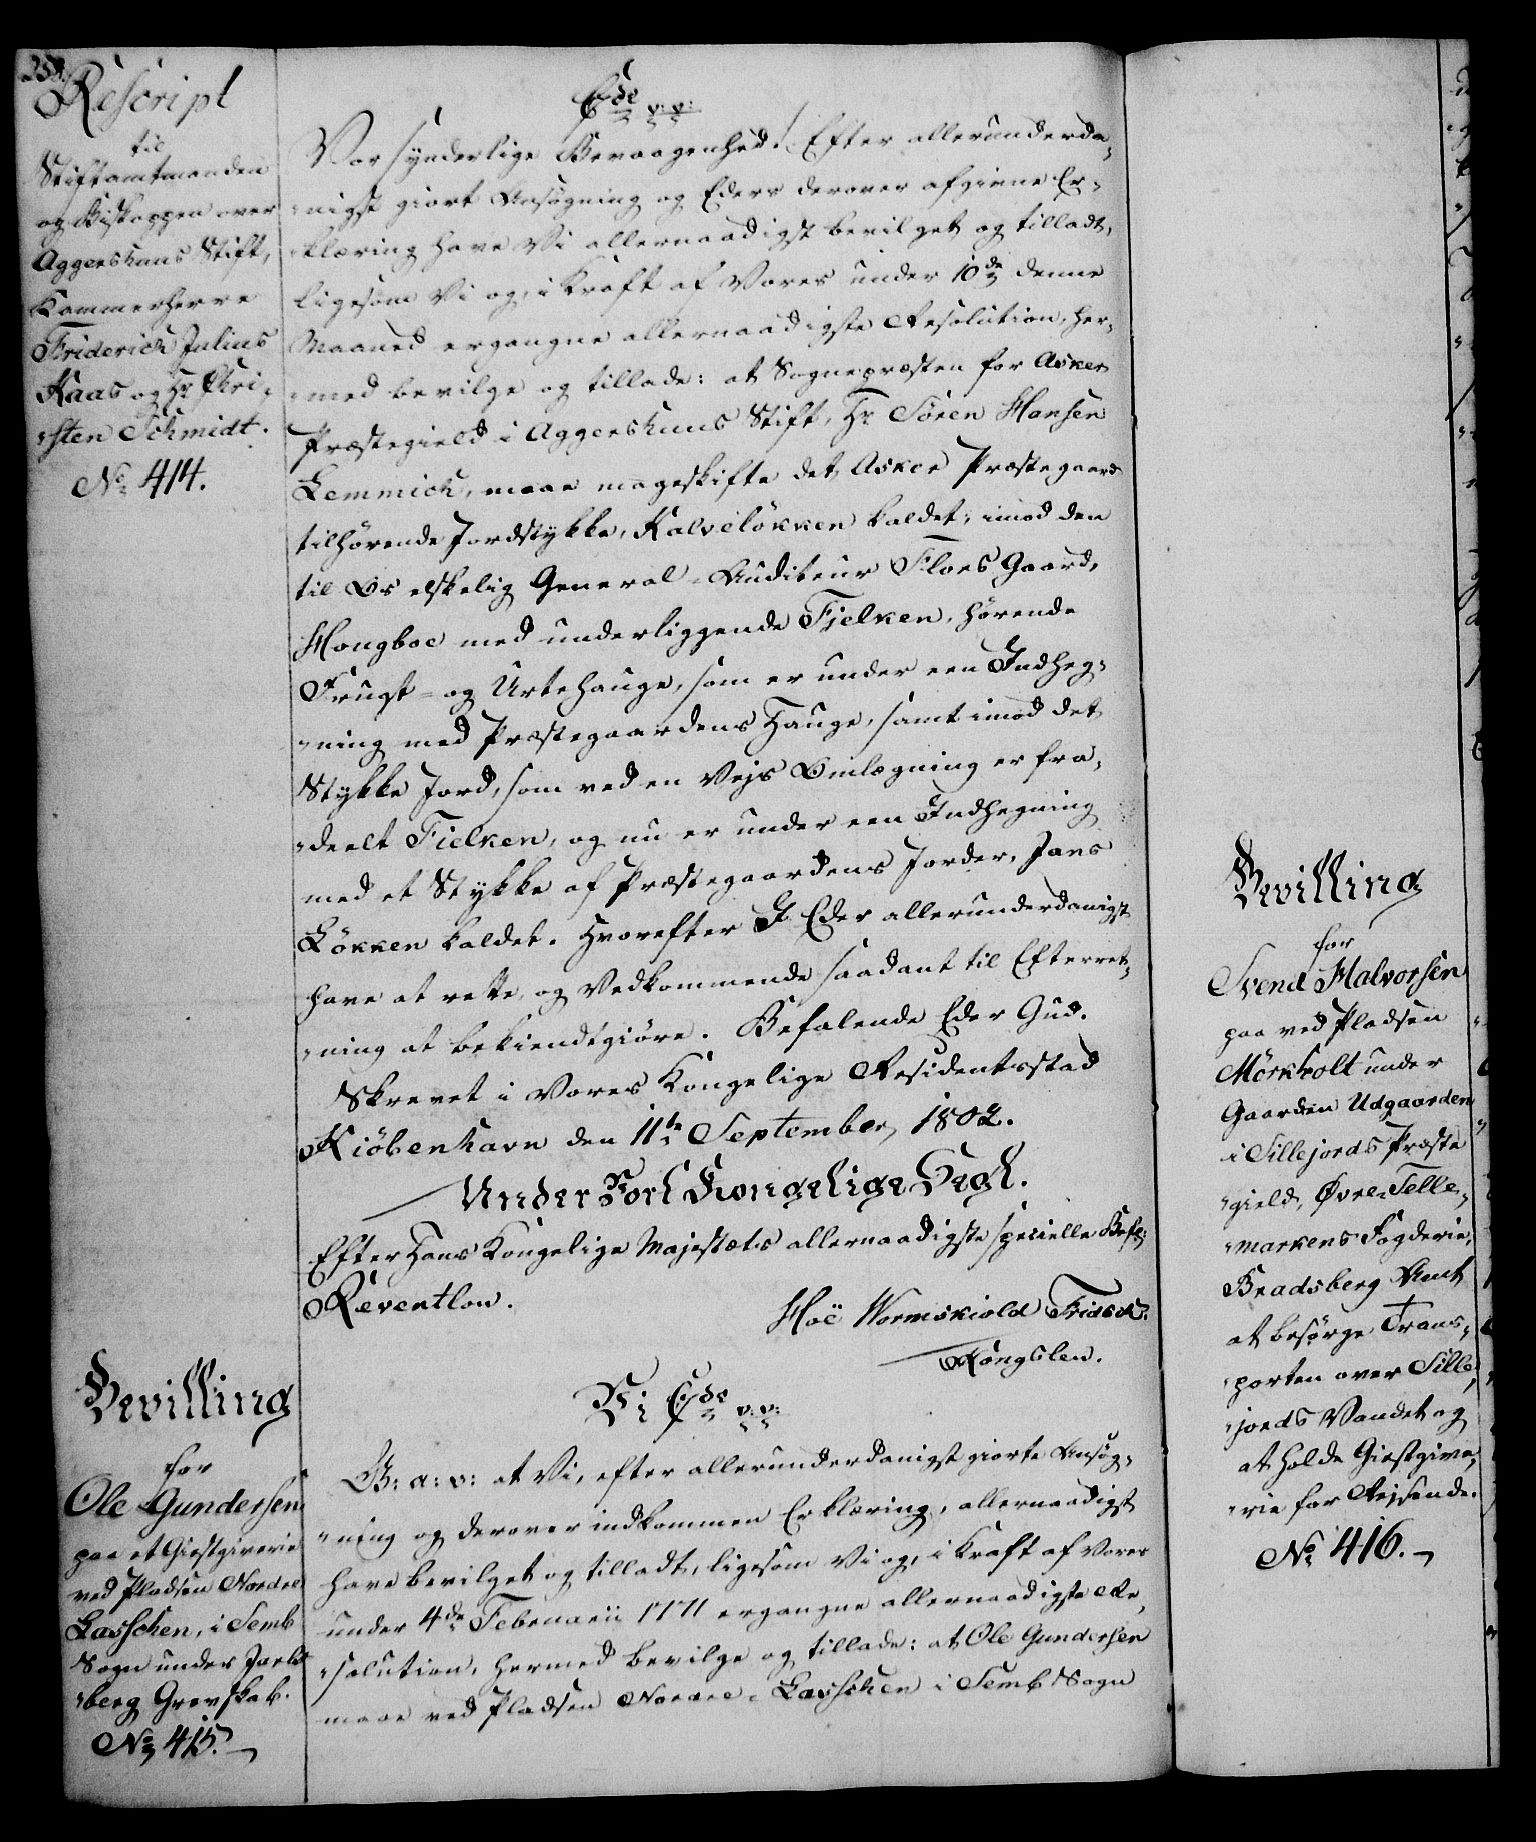 258.
Rescript
til
Stiftamtmanden
og Biskoppen over
Aggershuus Stift,
Kammerherre
Friderich Julius
Kaas og Hr Chri-
sten Schmidt.
No 414.
C 7de v: v:
Vor synderlige Bevaagenhed! Efter allerunderda-
nigst giort Ansøgning og Eders derover afgivne Er-
klæring have Vi allernaadigst bevilget og tilladt,
ligesom Vi og, i Kraft af Vores under 10de denne
Maaned ergangne allernaadigste Resolution, her-
med bevilge og tillade: at Sognepræsten for Asker
Præstegield i Aggershuus Stift, Hr Sören Hansen
Lemmich, maae mageskifte det Asker Præstegaard
tilhørende Jordstykke, Kalvelökken kaldet, imod den
til Os elskelig General-Auditeur Floes Gaard,
Hougboe med underliggende Fielken, hørende
Frugt- og Urtehauge, som er under een Indheg-
ning med Præstegaardens Hauge, samt imod det
Stykke Jord, som ved en Vejs Omlægning er fra-
deelt Fielken, og nu er under een Indhegning
med et Stykke af Præstegaardens Jorder, Jans
Lökken kaldet. Hvorefter I Eder allerunderdanigst
have at rette, og Vedkommende saadant til Efterret-
ning at bekiendtgiøre. Befalende Eder Gud.
Skrevet i Vores Kongelige Residentsstad
Kiöbenhavn den 11te September, 1802.
Under Vort Kongelige Segl.
Efter Hans Kongelige Majestæts allernaadigste specielle Befal:
Reventlow.
Moë Wormskiold Fridsch.
Köngslew.
Bevilling
for
Ole Gundersen
paa et Giestgiverie
ved Pladsen Nordre
Lasschen, i Semb
Sogn under Jarls-
berg Grevskab.
No 415.
Vi C 7de v: v:
G: a: v: at Vi, efter allerunderdanigst giorte Ansøg-
ning og derover indkommen Erklæring, allernaadigst
have bevilget og tilladt, ligesom Vi og, i Kraft af Vores
under 4de Februarii 1771 ergangne allernaadigste Re-
solution, hermed bevilge og tillade: at Ole Gundersen
maae ved Pladsen Nordre-Lasschen i Semb Sogn
Bevilling
for
Svend Halvorsen
paa ved Pladsen
Mörkholt under
Gaarden Udgaarden
i Sillejords Præste-
gield, Øvre Telle-
markens Fogderie,
Bradsberg Amt
at besørge Trans-
porten over Sille-
jords Vandet og
at holde Giestgive-
rie for Rejsende.
No 416.